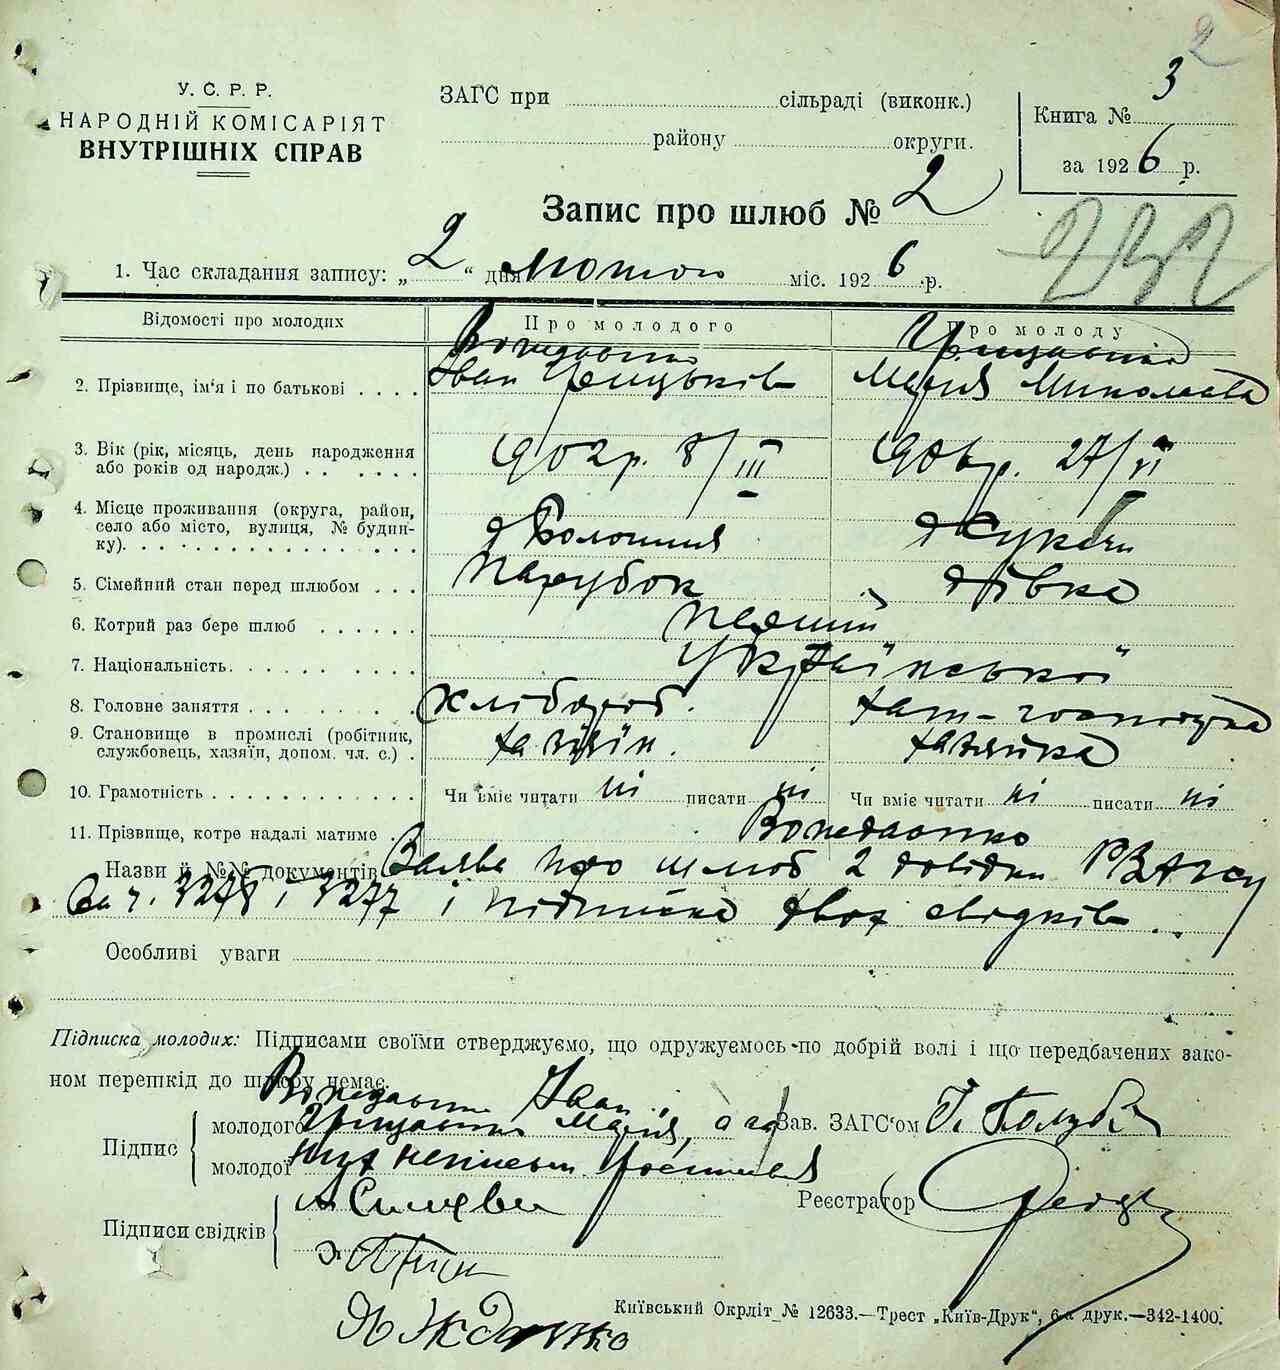 2
3
У. С. Р. Р.
НАРОДНІЙ КОМІСАРІЯТ
ВНУТРІШНІХ СПРАВ
ЗАГС при сільраді (виконк.)
району округи.
Книга №
за 1926 р.
Запис про шлюб № 2
232
1. Час складання запису: „2“ дня лютого міс. 1926 р.
Відомості про молодих
Про молодого
Про молоду
2. Прізвище, ім'я і по батькові
Іван Грицьків
Марія Миколаєва
3. Вік (рік, місяць, день народження
або років од народж.)
902р. 8/III
906р. 27/VI
4. Місце проживання (округа, район,
село або місто, вулиця, № будин-
ку).
5. Сімейний стан перед шлюбом
Парубок
дівка
6. Котрий раз бере шлюб
перший
7. Національність.
Української
8. Головне заняття
хлібороб.
9. Становище в промислі (робітник,
службовець, хазяїн, допом. чл. с.)
хазяїн.
хазяйка
10. Грамотність
Чи вміє читати ні писати ні
Чи вміє читати ні писати ні
11. Прізвище, котре надалі матиме
Назви й №№ документів Заява про шлюб 2 довідки
за ч. 3278 і 3277 і підписка двох свідків.
Особливі уваги
Підписка молодих: Підписами своїми стверджуємо, що одружуємось по добрій волі і що передбачених зако-
ном перешкід до шлюбу немає.
Підпис
молодого
Іван
молодої
Марія, а за
них неписьм. росписався
Зав. ЗАГС'ом
Підписи свідків
Реєстратор
Київський Окрліт № 12633.—Трест „Київ-Друк“, 6-а друк.—342-1400.